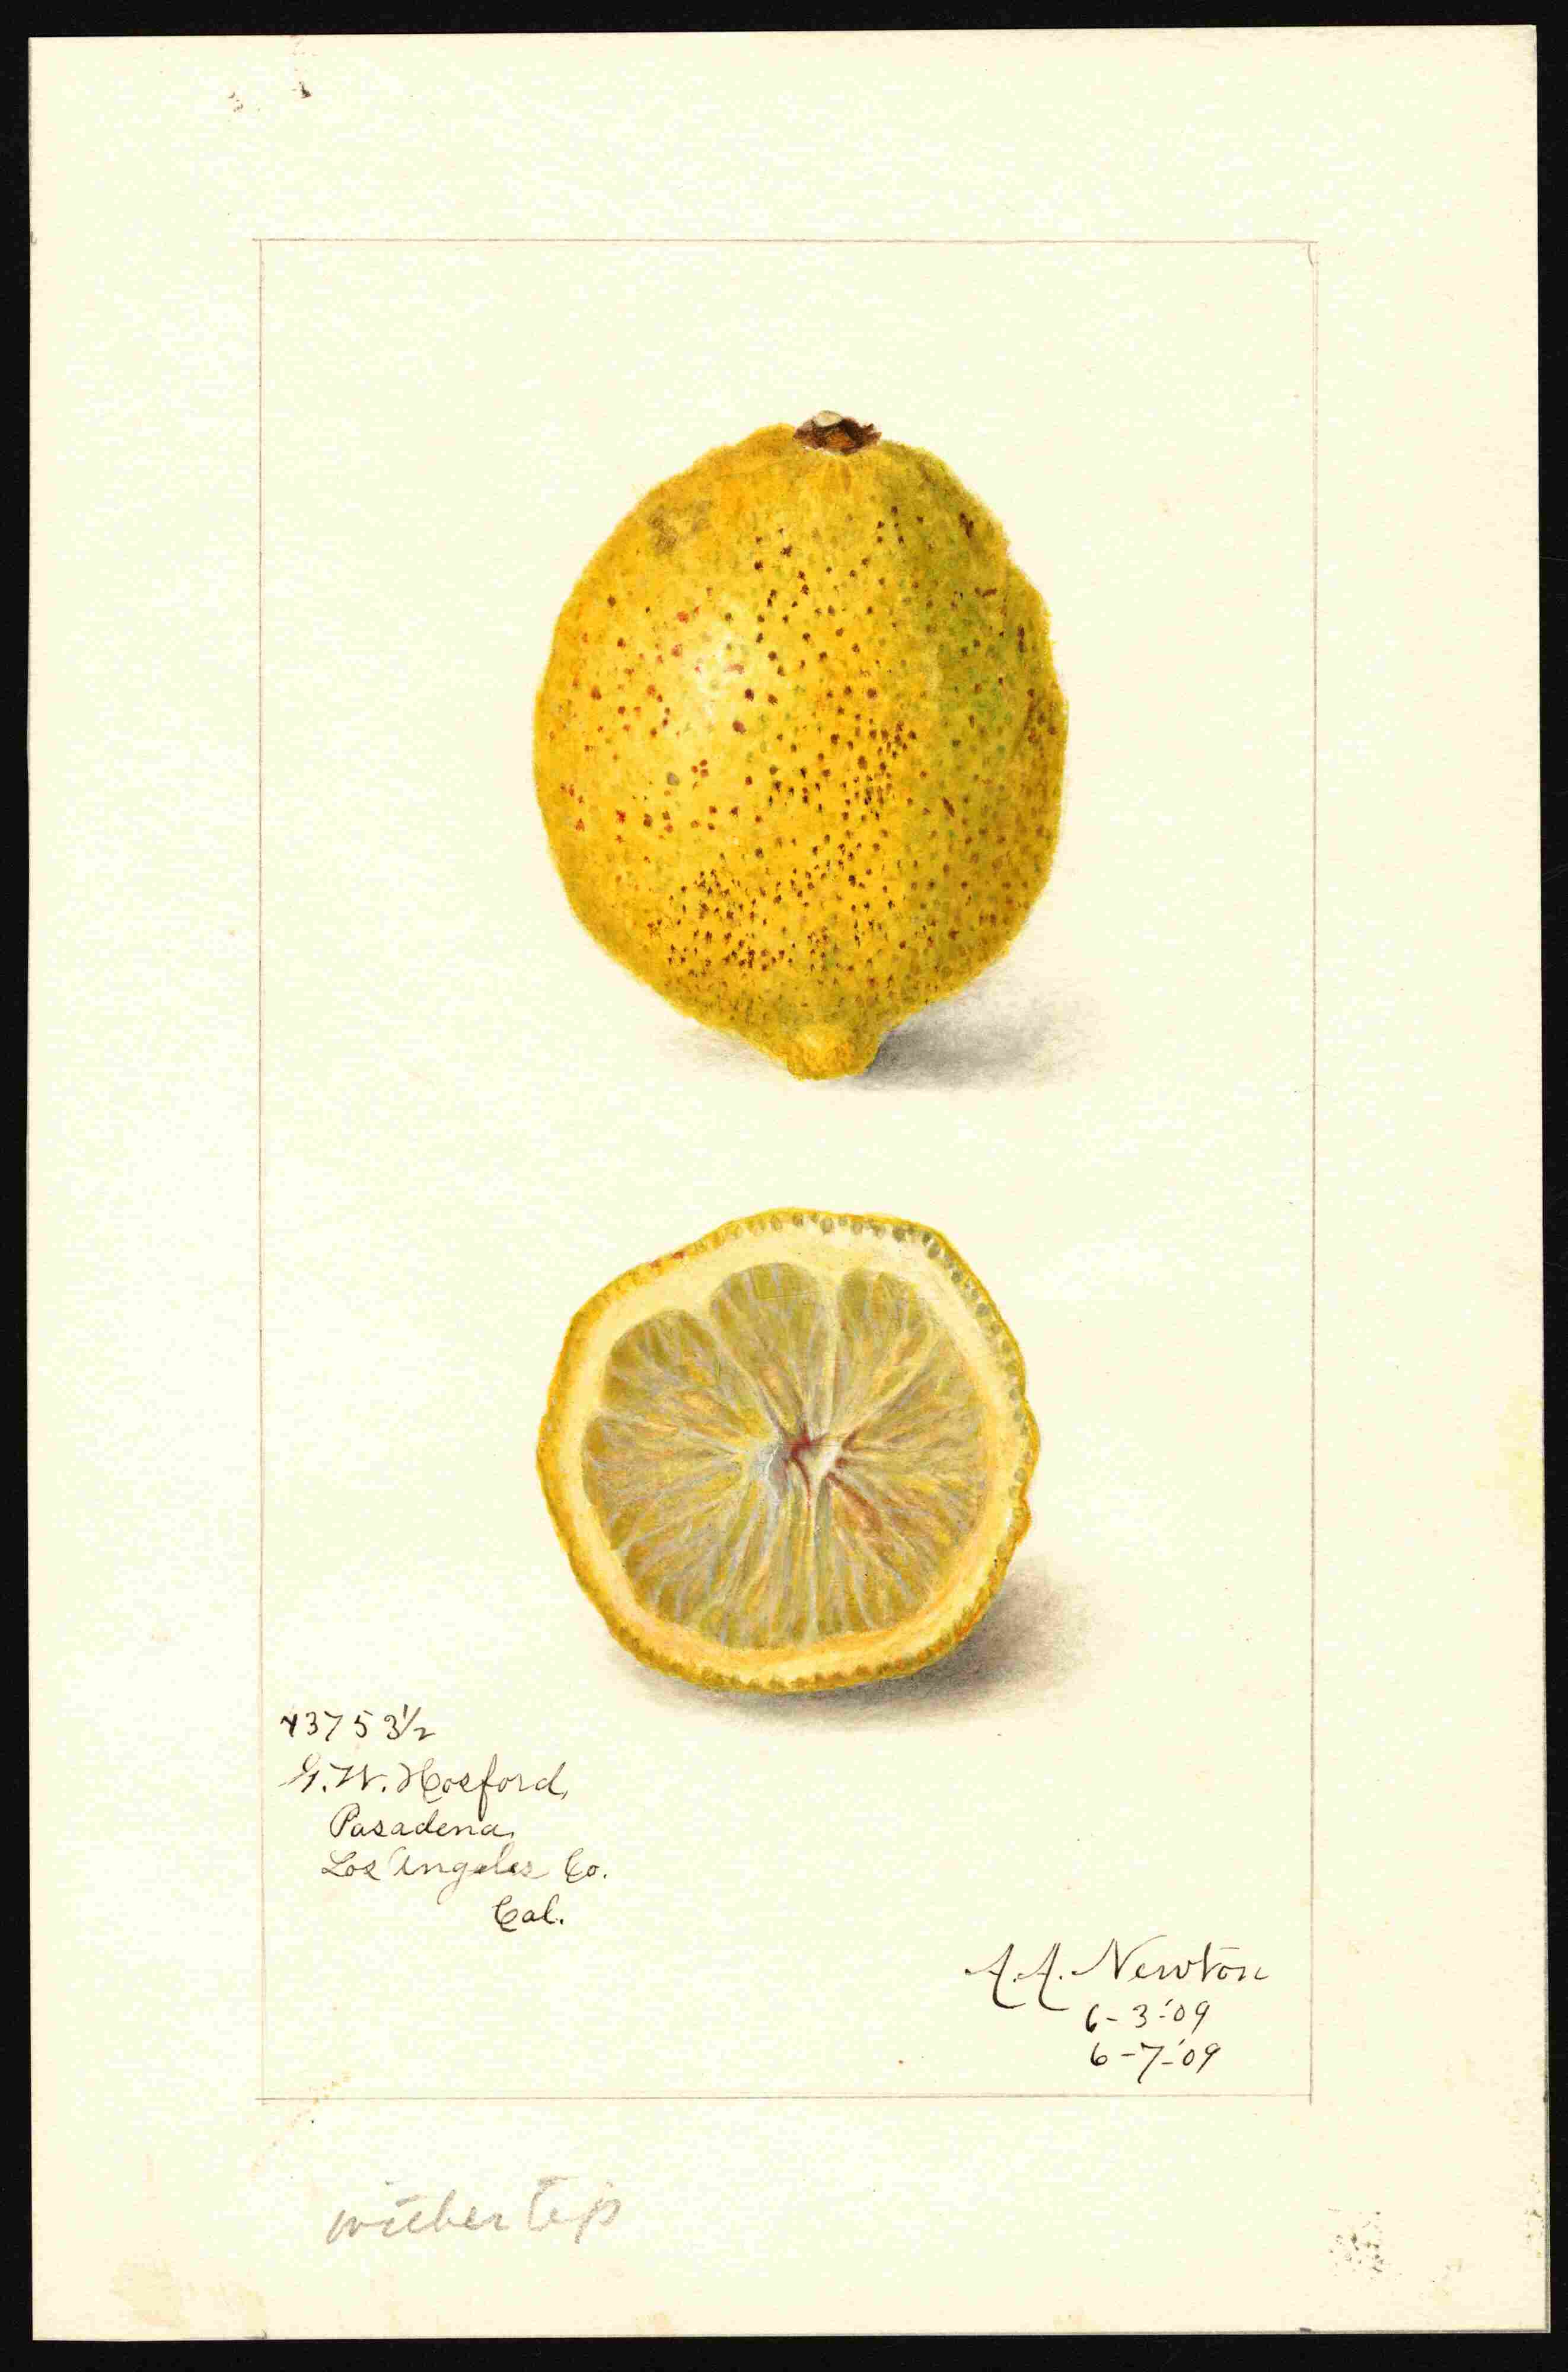 43753½
G. W. Hosford,
Pasadena,
Los Angeles Co.
Cal.
A. A. Newton
6-3-'09
6-7-'09
wither tip